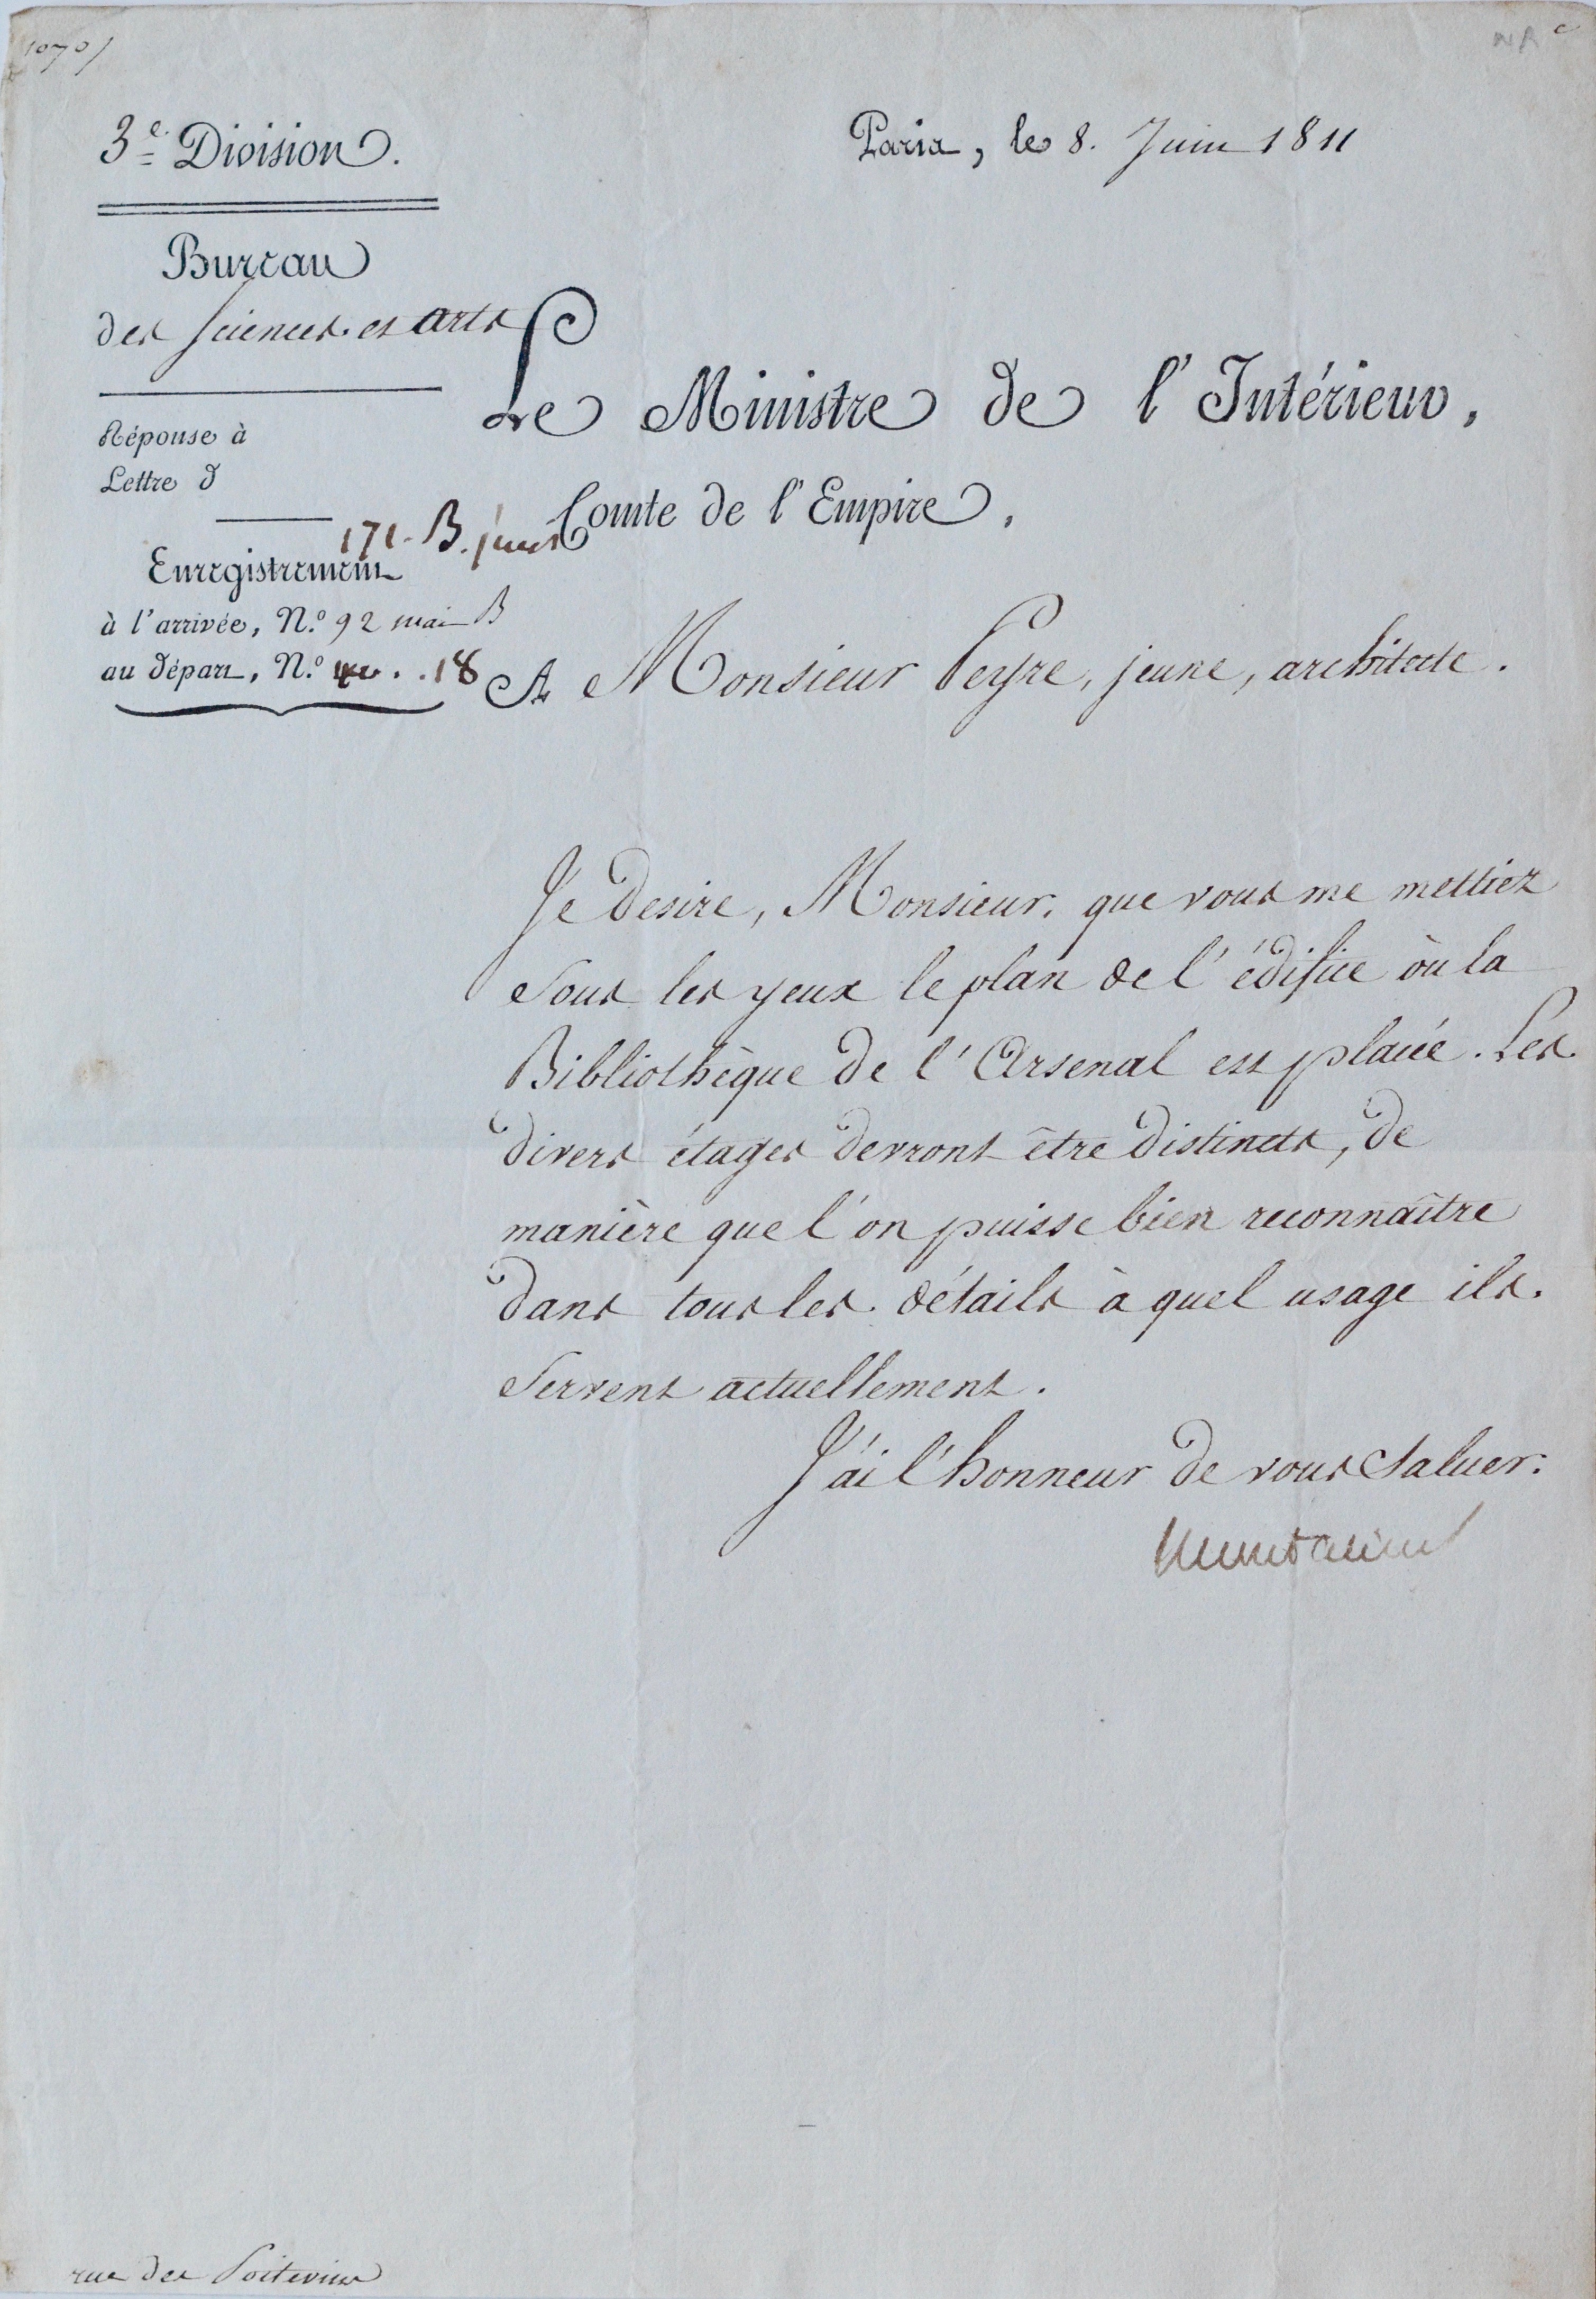 3e Division.
Paris, le 8. Juin 1811
Bureau
des Sciences et arts
Le Ministre de l'Intérieur,
Réponse à
Lettre d
Comte de l'Empire,
171. B. juin
Enregistrement
à l'arrivée, N.o 92 mai B
au départ, N.o 18
A Monsieur Peyre, jeune, architecte.
Je desire, Monsieur, que vous me mettiez
sous les yeux le plan de l'édifice où la
Bibliothèque de l'Arsenal est placée. Les
divers étages devront être distincts, de
manière que l'on puisse bien reconnaître
dans tous les détails à quel usage ils
servent actuellement.
J'ai l'honneur de vous saluer.
Montalivet
rue des Poitevins